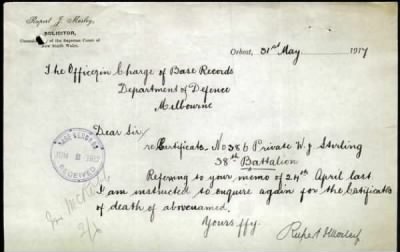 Rupert J. Mosley
SOLICITOR,
of the Supreme Court of
New South Wales.
31st May 1917
The Officer in Charge of Base Records
Department of Defence
Melbourne
Dear Sir,
re Certificate No 386 Private W. J. Sterling
38th Battalion
Referring to your memo of 24th April last
I am instructed to enquire again for the Certificate
of death of abovenamed.
Yours ffy.
BASE RECORDS
1917
RECEIVED
2/6